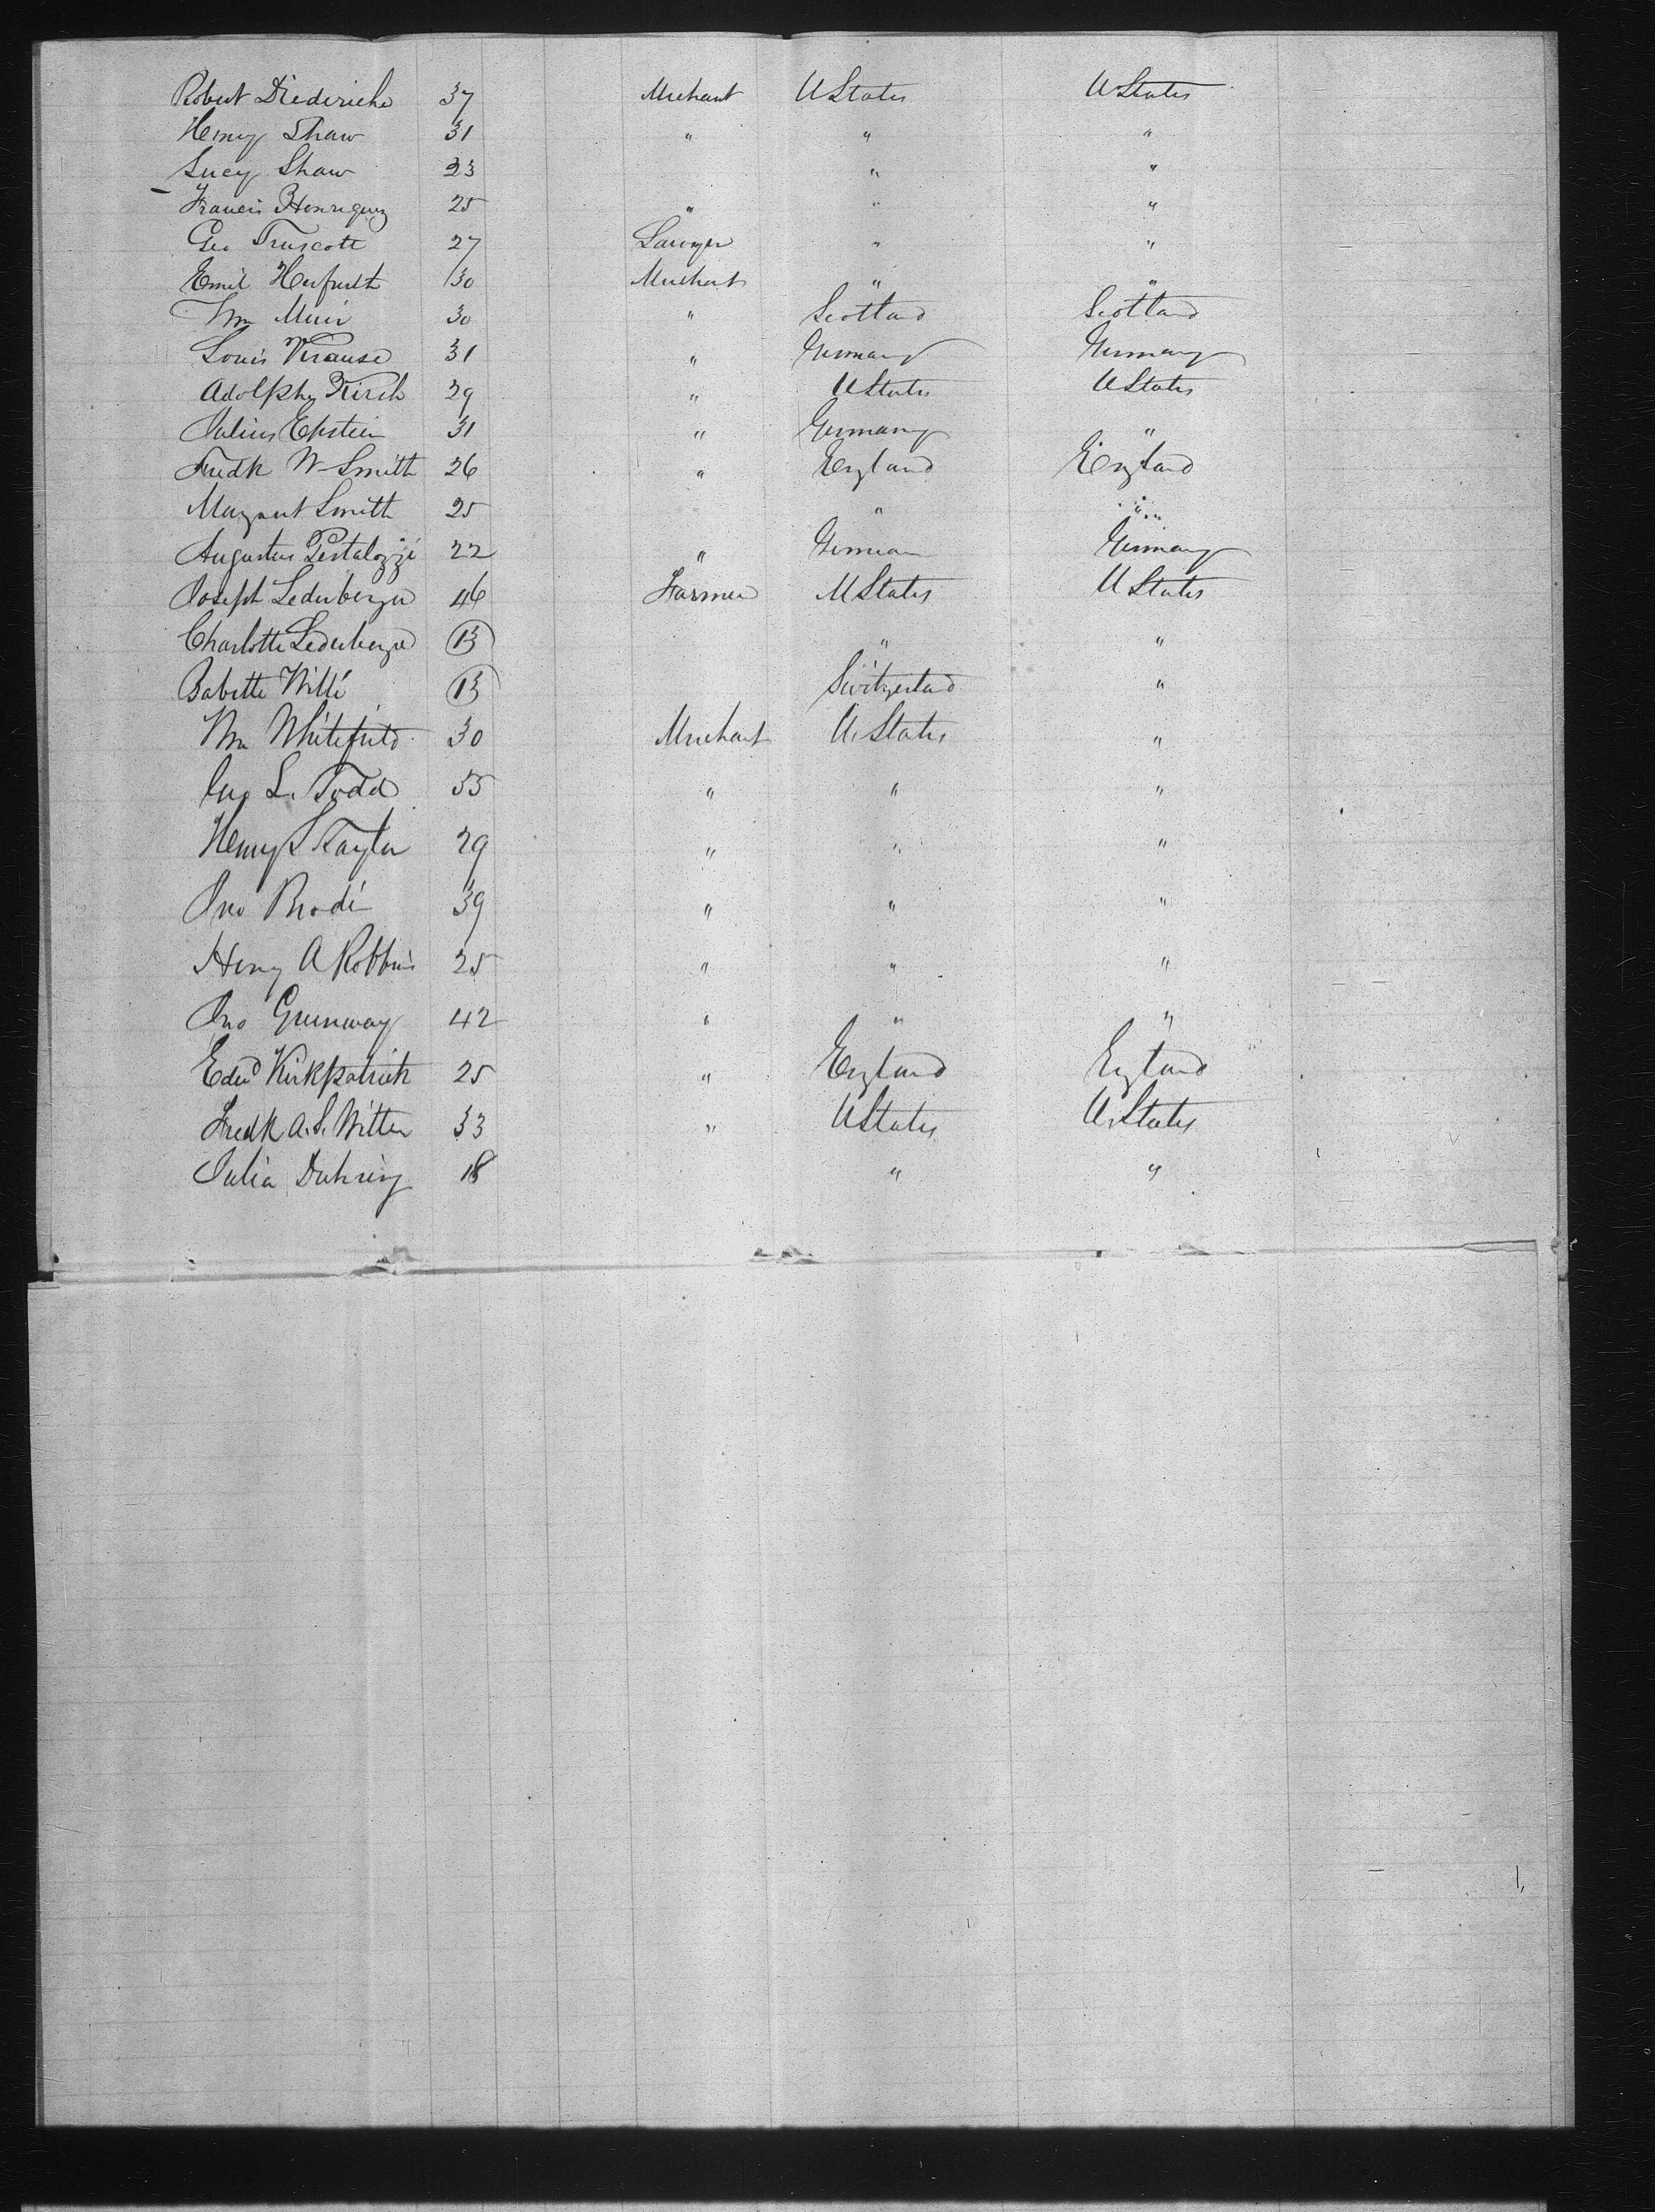 Robert Diederichs 37 Merchant U States U States
Henry Shaw 31 " " "
Lucy Shaw 23 " "
Francis Henriquez 25 " " "
Geo Truscott 27 Lawyer " "
Emil Herfurth 30 Merchant " "
Wm Muir 30 " Scotland Scotland
Louis Krause 31 " Germany Germany
Adolph Kirsh 29 " U States U States
Julius Epstein 31 " Germany "
Fredk W Smith 26 " England England
Margaret Smith 25 " "
Augustus Pestalozzi 22 " German Germany
Joseph Lederberger 46 Farmer U States U States
Charlotte Lederberger 13 " "
Babette Willi 13 Switzerland "
Wm Whitefield 30 Merchant U. States "
Jno L. Todd 55 " " "
Henry S Taylor 29 " " "
Jno Brodi 39 " " "
Henry A Robbins 25 " " "
Jno Greenway 42 " " "
Edwd Kirkpatrick 25 " England England
Fredk A. S. Witter 33 " U States U. States
Julia Duhring 18 " "